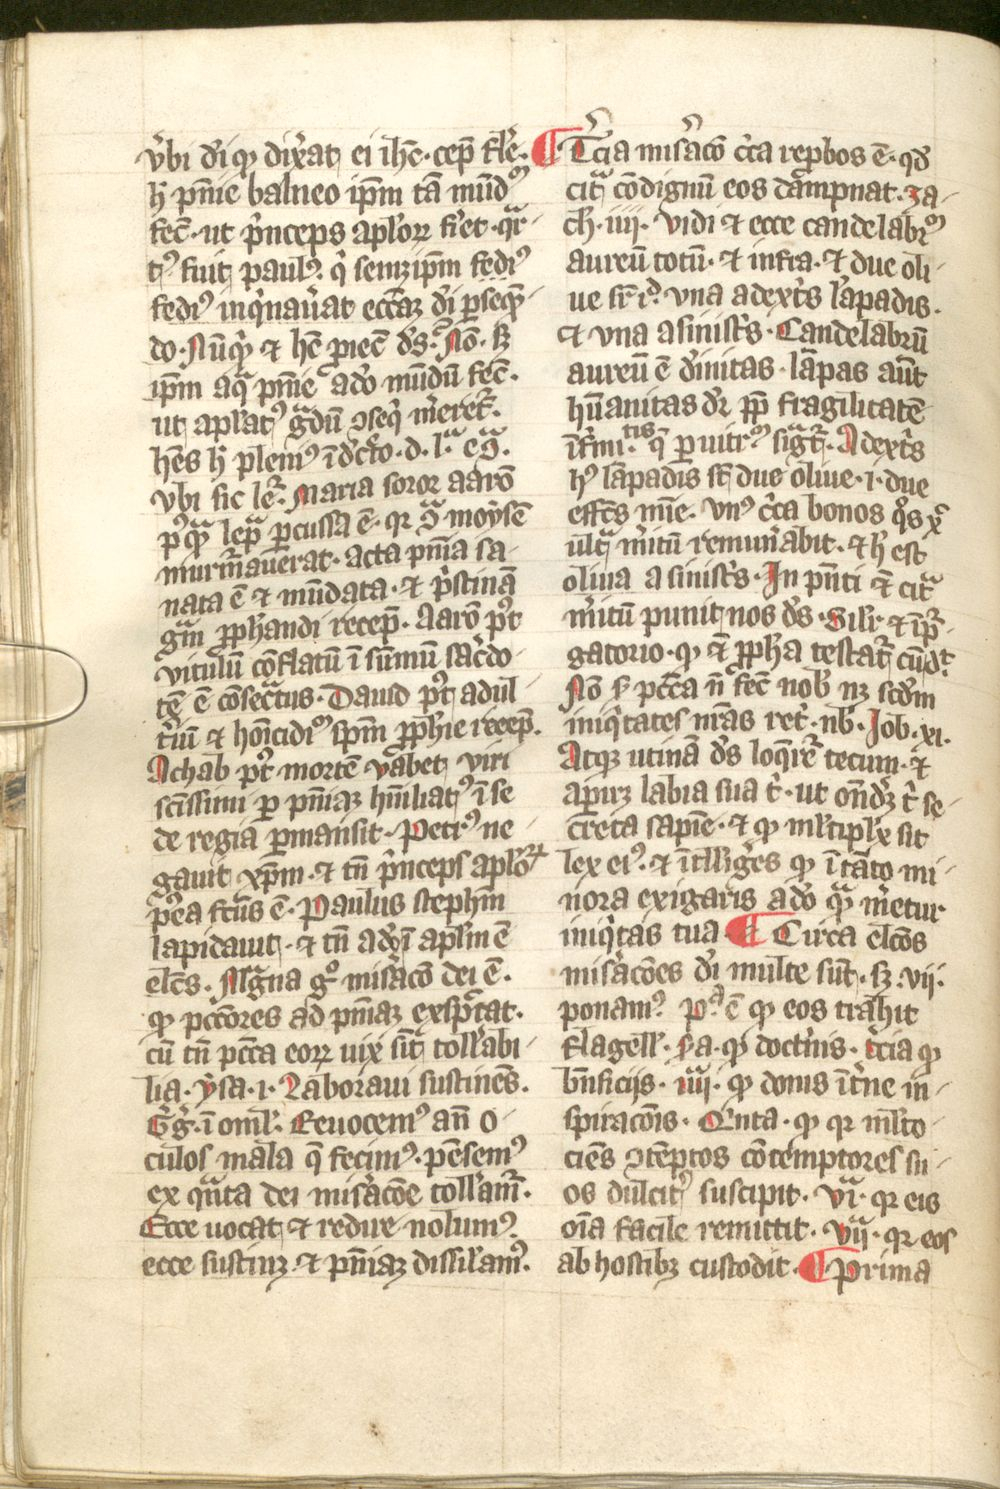 v̾bi d̾i q̜ dix̾at ei ih̅c · cep̅ fle̾ ·
h̾ pn̅ie balneo ip̅m ta̅ mu̅dꝰ
fec̅ · ut p̾nceps aplo̾ꝝ fi̾et · qr̾
tꝰ fuit paulꝰ q̾ semꝫip̅m fediꝰ
fediꝰ inq̾nau̾at ecc̅az d̾i ꝑseq̅ꝫ
do · Nu̅q̜ et he̅ p̾iec̅ d̅s · No̅ · sꝫ
ip̅m aq̅ pn̅ie ado̾ mu̅du̅ fec̅ ·
ut apl̾atꝰ g̾du̅ ꝯseq̾ m̾eret̾ ·
he̅s h̾ pleniꝰ
vbi sic le̾ · Maria soror aaro̅
pꝰqͣ lep̅ ꝑcussa e̅ · qꝛ ꝯͣ moyse̅
murm̾auerat · acta pn̅ia sa-
nata e̅ et mu̅data · et p̾stina̅
gr̅am ꝓph̅andi recep̅ · Aaro̅ p̾t
vitulu̅ co̅flatu̅ i̅ su̅mu̅ sac̾do-
te̅ e̅ co̅sec̾tus · Dauid p̾t adul-
t̾iu̅ et ho̅icidiꝰ sp̅m ꝓph̅ie recep̅ ·
Achab p̾t morte̅ vabet viri
sc̅issimi ꝑ pn̅iaꝫ hu̅iliatꝰ i̅ se
de regia ꝑmansit · Petrꝰ ne-
gauit xp̅m · et tn̅ p̾nceps aplo̾ꝝ
p̾ea fc̅us e̅ · Paulus steph̅m
lapidauit · et tn̅ ad i̅ apl̅m e̅
elc̅s · Magna g̾ mis̾aco̅ dei e̅ ·
q̜ pcc̅ores ad pn̅iaꝫ exspc̅tat ·
cu̅ tn̅ pcc̅a eoꝝ uix si̅t toll̾abi-
lia · ysa · i · Laboraui sustine̅s ·
Gg̾ · i̅ omel̾ · Reuocemꝰ an̅ o-
culos mala q̅ fecimꝰ · pe̅semꝰ
ex qͣnta dei mis̾aco̅e toll̾am̾ ·
Ecce uocat et redire nolumꝰ
ecce sustinꝫ · et pn̅iaꝫ dissil̾amꝰ ·
¶ T̾cia mis̾aco̅ c̾ca rep̾bos e̅ · qd̾
citͣ co̅dignu̅ eos da̅mpnat · za-
ch · iiij · Vidi et ecce candelabrꝰ
aureu̅ totu̅ · et infra · et due oli-
ue sr̅ iͩ · vna adext̾s la̅padis ·
et vna a sinist̾s · Candelabru̅
aureu̅ e̅ diuinitas · la̅pas aut̅
hu̅anitas d̾r ꝓp̅ fragilitate̅
i̅firmi tis q̅ ꝑ uitrꝰ sigͣt̾ · Adext̾s
hꝰ la̅padis st̅ due oliue · i · due
effc̅s mi̅e · Vnꝰ c̾ca bonos q̾s
ultͣ m̾itu̅ remun̾abit · et h̾ est
oliua a sinist̾s · In pn̅ti et citͣ
m̾itu̅ punit nos d̅s · Sil̾r et i̅ pr̾-
gatorio · q̜ et ꝓph̅a testat̾ cu̅ d̾t
No̅ s̾ pcc̅a nr̅a fec̅ nob̾ nꝫ scd̅m
iniq̾tates nr̅as ret̾ · nb̾ · Job · xi ·
Atqꝫ utina̅ d̅s loq̾re̾ tecum · et
aꝑirꝫ labia sua t̾ · ut on̅dꝫ t̾ se-
creta sapie̅ · et q̜ ml̾tiplx̾ sit
lex eiꝰ · et i̅tellig̾es q̜ i̅ ta̅to mi-
nora exigaris ado̾ qͣ m̾etur
iniq̾tas tua ¶ Circa elc̅os
mis̾aco̅es d̾i multe su̅t · sꝫ · vij ·
ponamꝰ · pͣ e̅ q̜ eos trahit
flagell̾ · s̾a · q̜ doct̾nis · t̾cia q̜
bn̅ficijs · iiijͣ · q̜ donis i̅t̾ne in-
spiraco̅is · Qͥnta · q̜ qꝛ ml̾to-
cie̅s ꝯte̅ptos co̅temptores su-
os dulcit̾ suscipit · vjͣ · qꝛ eis
oi̅a facile remittit · vijͣ · qꝛ eos
ab hostibꝫ custodit · ¶ Prima